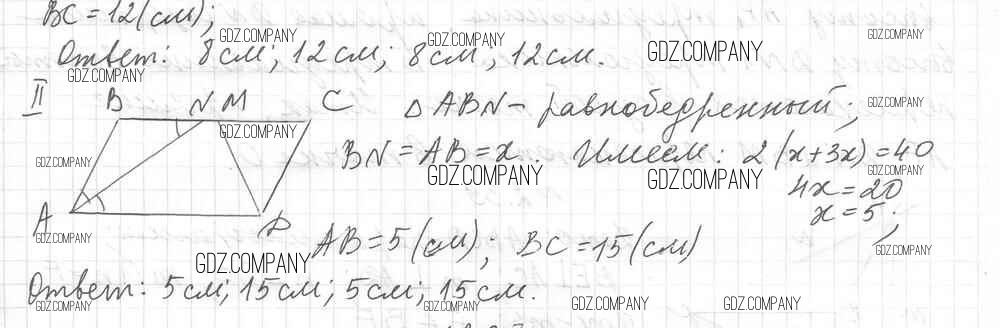 BC = 12 (см);
GDZ.COMPANY
GDZ.COMPANY
GDZ.COMPANY
Ответ: 8 см; 12 см; 8 см, 12 см.
GDZ.COMPANY
GDZ.COMPANY
II
B N M C
△ ABN – равнобедренный;
GDZ.COMPANY
GDZ.COMPANY
BN = AB = x. Имеем: 2 (x+3x) = 40
GDZ.COMPANY
GDZ.COMPANY
GDZ.COMPANY
GDZ.COMPANY
4x = 20
x = 5;
A D
GDZ.COMPANY
AB = 5 (см); BC = 15 (см)
GDZ.COMPANY
GDZ.COMPANY
Ответ: 5 см; 15 см; 5 см; 15 см.
GDZ.COMPANY
GDZ.COMPANY
GDZ.COMPANY
GDZ.COMPANY